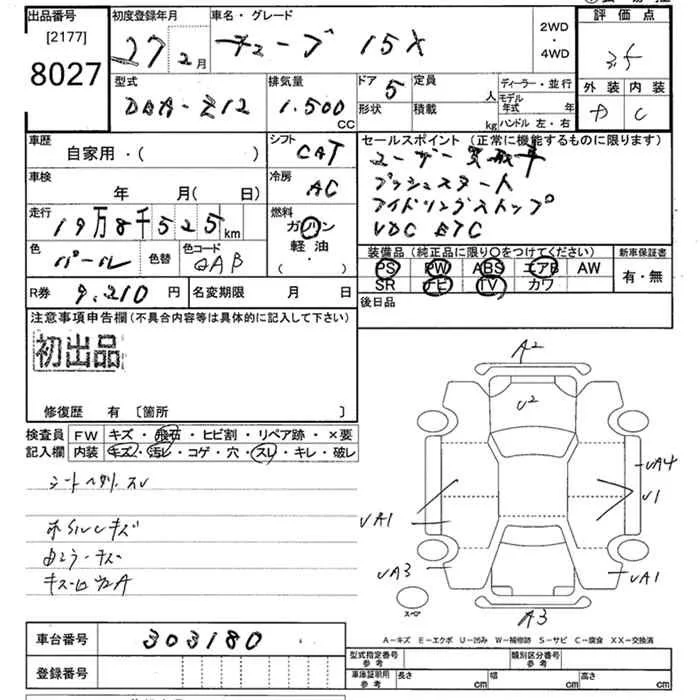 出品番号
[2177]
8027
初度登録年月
27 2月
車名・グレード
キューブ 15X
2WD
・
4WD
評価点
外装 内装
C
型式
DBA-Z12
排気量
1.500 CC
ドア 5
形状
定員 人
積載 kg
ディーラー・並行
モデル年式 年
ハンドル 左・右
車歴
自家用・( )
シフト
CAT
車検
年 月( 日)
冷房
AC
走行
19万8千525km
燃料
ガソリン
軽油・
( )
色
パール
色替
色コード
QAB
R券 9.210円
名変期限 月 日
セールスポイント (正常に機能するものに限ります)
ユーザー買取車
プッシュスタート
アイドリングストップ
VDC ETC
装備品(純正品に限り○をつけてください)
PS PW ABS エアB AW
SR ナビ TV カワ
新車保証書
有・無
後日品
注意事項申告欄(不具合内容等は具体的に記入して下さい)
初出品
修復歴 有 〔箇所 〕
検査員記入欄
FW キズ・飛石・ヒビ割・リペア跡・×要
内装 キズ・汚レ・コゲ・穴・スレ・キレ・破レ
シートヘタリ スレ
ホイルCキズ
A2
U2
UA4
U1
UA1
UA3
UA1
A3
スペア
A−キズ E−エクボ U−凹み W−補修跡 S−サビ C−腐食 XX−交換済
車台番号 303180
登録番号
型式指定番号
参考
類別区分番号
参考
車庫証明用
参考
長さ cm
幅 cm
高さ cm